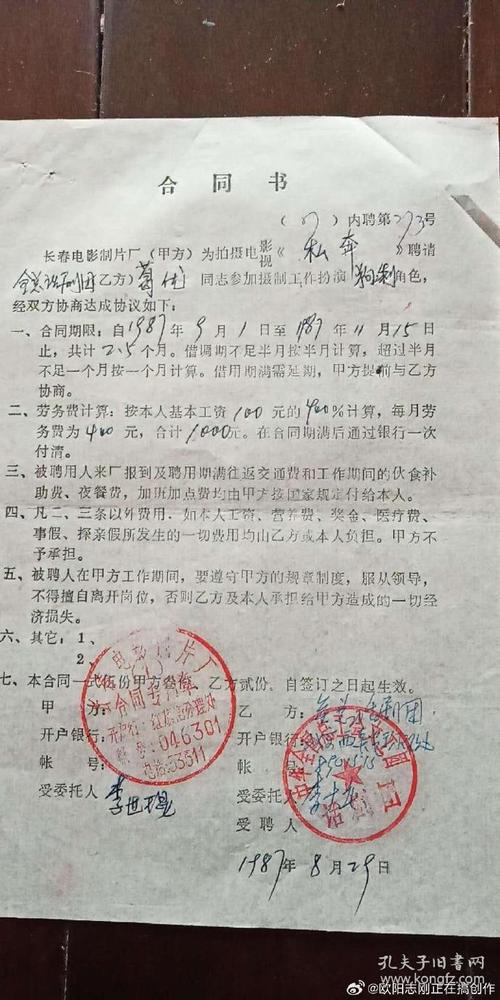 合同书
(87)内聘第273号
长春电影制片厂(甲方)为拍摄电影视《私奔》聘请
全总话剧团(乙方)葛优同志参加摄制工作扮演狗剩角色,
经双方协商达成协议如下:
一、合同期限:自1987年9月1日至1987年11月15日
止,共计2.5个月。借调期不足半月按半月计算,超过半月
不足一个月按一个月计算。借用期满需延期,甲方提前与乙方
协商。
二、劳务费计算:按本人基本工资100元的400%计算,每月劳
务费为400元,合计1000元。在合同期满后通过银行一次
付清。
三、被聘用人来厂报到及聘用期满往返交通费和工作期间的伙食补
助费、夜餐费,加班加点费均由甲方按国家规定付给本人。
四、凡二、三条以外费用,如本人工资、营养费、奖金、医疗费、
事假、探亲假所发生的一切费用均由乙方或本人负担。甲方不
予承担。
五、被聘人在甲方工作期间,要遵守甲方的规章制度,服从领导,
不得擅自离开岗位,否则乙方及本人承担给甲方造成的一切经
济损失。
六、其它:1、
2、
七、本合同一式伍份甲方叁份,乙方贰份,自签订之日起生效。
甲方:
乙方:全总话剧团
开户银行:
开户银行:
帐号:
帐号:
受委托人
受委托人
李世
受聘人
1987年8月29日
电影制片厂
合同专用章
046301
电话:53511
话剧团
孔夫子旧书网
@欧阳志刚正在搞创作